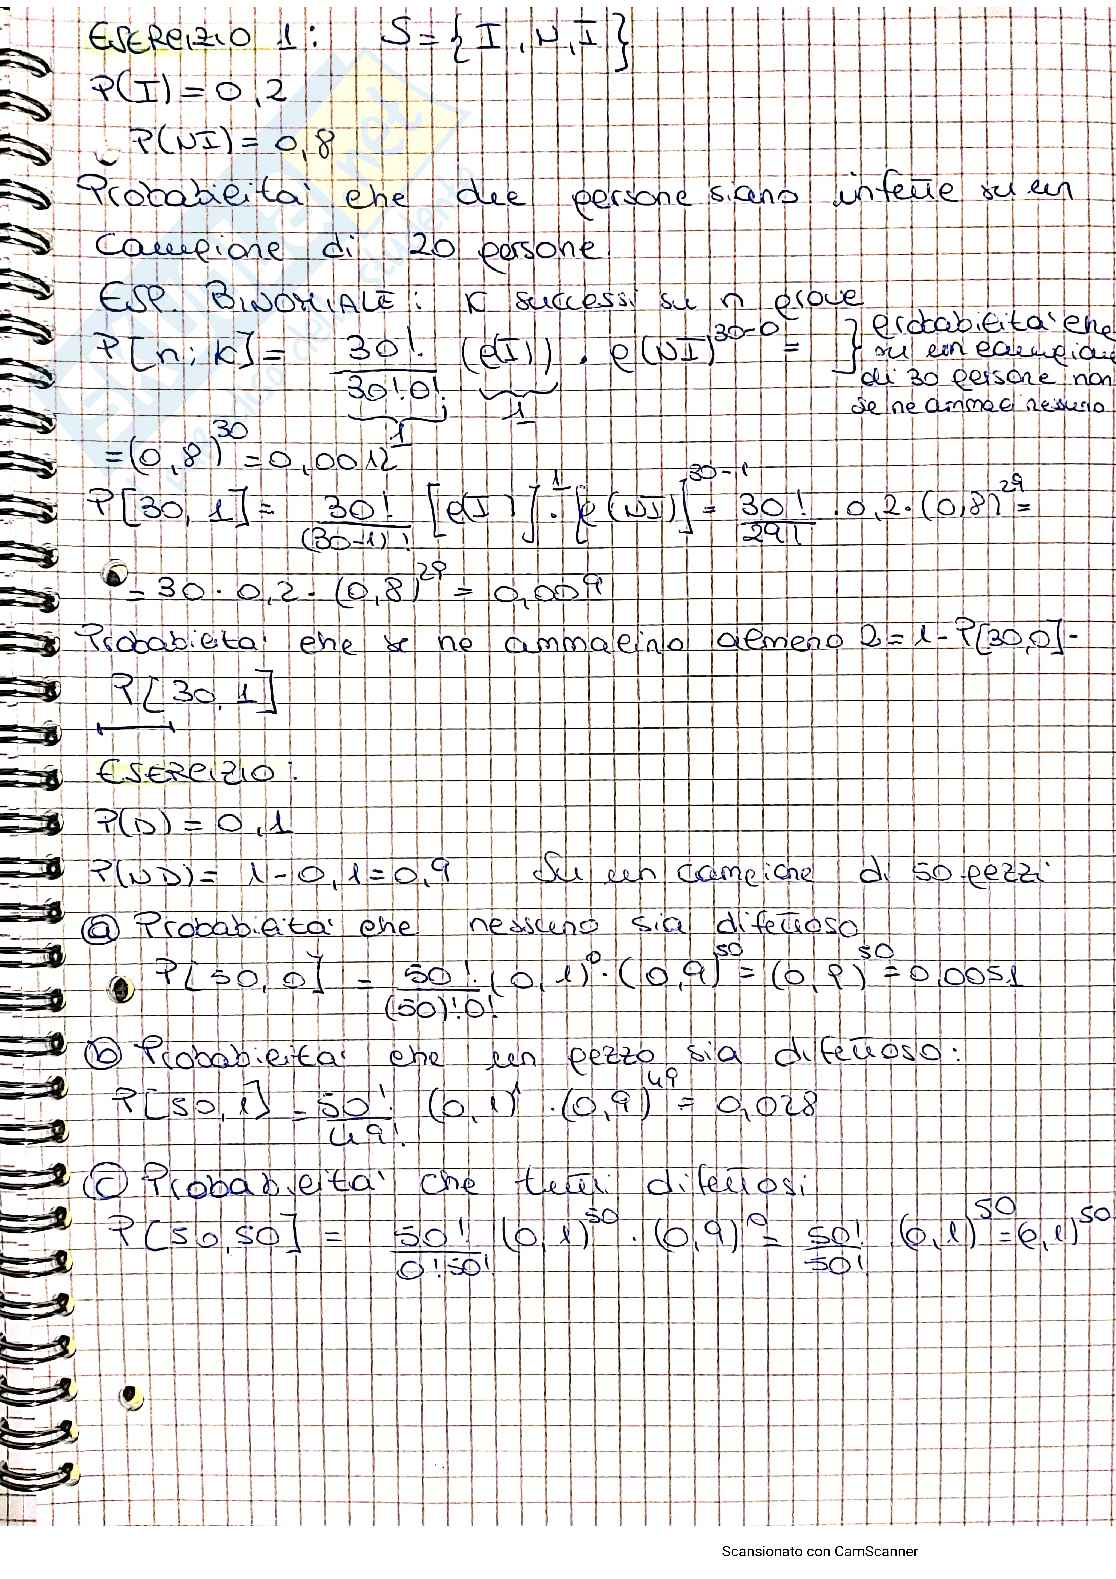 ESERCIZIO 1: S={I, N, I}
P(I)=0,2
P(NI)=0,8
Probabilità che due persone siano infette su un
campione di 20 persone
ESP. BINOMIALE: K successi su n prove
P[n;k]= 30!/30!0! (p(I))·p(NI)^30-0 = } probabilità che
su un campione
di 30 persone non
se ne ammali nessuno
1 1
=(0,8)^30=0,0012
P[30,1]= 30!/(30-1)! [p(I)]^1·[p(NI)]^30-1= 30!/29! ·0,2·(0,8)^29=
=30·0,2·(0,8)^29=0,009
Probabilità che se ne ammalino almeno 2=1-P[30,0]-
P[30,1]
ESERCIZIO:
P(D)=0,1
P(ND)=1-0,1=0,9 Su un campione di 50 pezzi
(a) Probabilità che nessuno sia difettoso
P[50,0]= 50!/(50)!0! (0,1)^0·(0,9)^50=(0,9)^50=0,0051
(b) Probabilità che un pezzo sia difettoso:
P[50,1]=50!/49! (0,1)^1·(0,9)^49=0,028
(c) Probabilità che tutti difettosi
P[50,50]= 50!/0!50! (0,1)^50·(0,9)^0= 50!/50! (0,1)^50=(0,1)^50
Scansionato con CamScanner